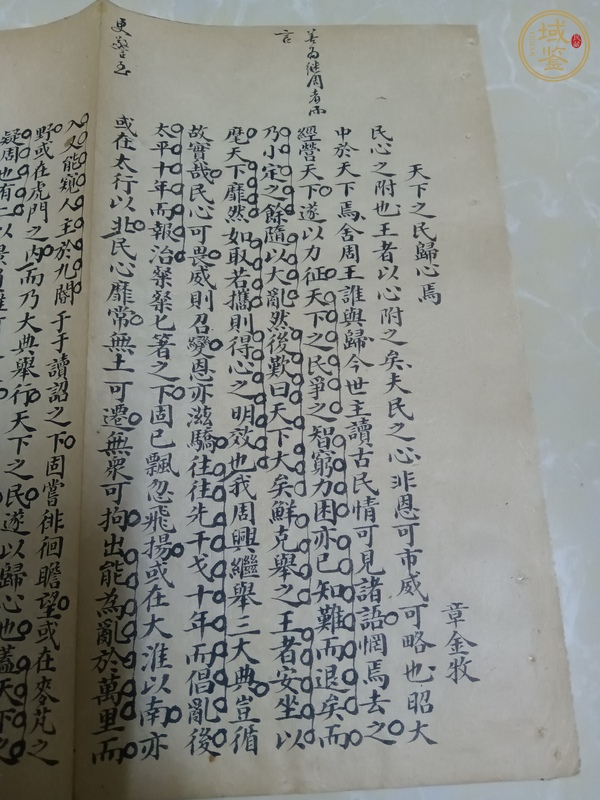 天下之民歸心焉
章金牧
民心之附也王者以心附之矣夫民之心非恩可市威可略也昭大
中於天下焉舍周王誰與歸今世主讀古民情可見諸語惘焉去之
經營天下遂以力征天下之民爭之智窮力困亦已知難而退矣而
乃小定之餘隨以大亂然後歎曰天下大矣鮮克舉之王者安坐以
麾天下靡然如取若攜則得心之明效也我周興繼舉三大典豈循
故實哉民心可畏威則召變恩亦滋驕往往先干戈十年而倡亂後
太平十年而報治粲粲匕箸之下固已飄忽飛揚或在大淮以南亦
或在太行以北民心靡常無土可遷無衆可拘出能為亂於萬里而
入又能窺人主於九閽于于讀詔之下固嘗徘徊瞻望或在麥芃之
野或在虎門之內而乃大典舉行天下之民遂以歸心也蓋天下之
疑周也有二以
善為繼周者而
言
域鑒